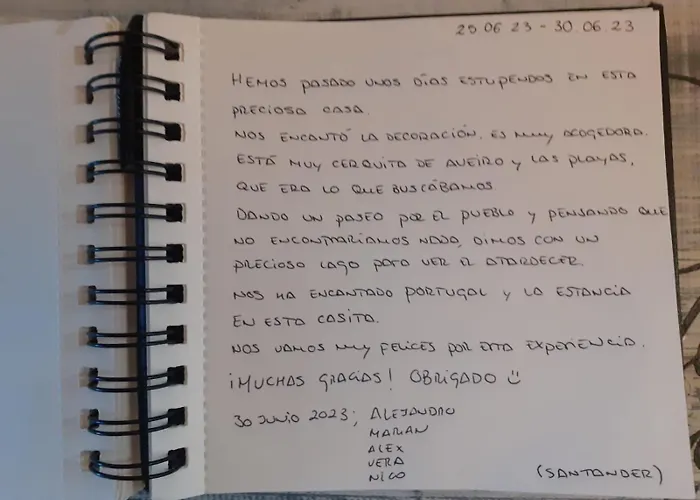 25.06.23 - 30.06.23
HEMOS PASADO UNOS DÍAS ESTUPENDOS EN ESTA
PRECIOSA CASA.
NOS ENCANTÓ LA DECORACIÓN, ES MUY ACOGEDORA.
ESTÁ MUY CERQUITA DE AVEIRO Y LAS PLAYAS,
QUE ERA LO QUE BUSCÁBAMOS
DANDO UN PASEO POR EL PUEBLO Y PENSANDO QUE
NO ENCONTRARÍAMOS NADA, DIMOS CON UN
PRECIOSO LAGO PARA VER EL ATARDECER.
NOS HA ENCANTADO PORTUGAL Y LA ESTANCIA
EN ESTA CASITA.
NOS VAMOS MUY FELICES POR ESTA EXPERIENCIA.
¡MUCHAS GRACIAS! OBRIGADO ☺
30 JUNIO 2023; ALEJANDRO
MARIAN
ALEX
VERA
NICO
(SANTANDER)